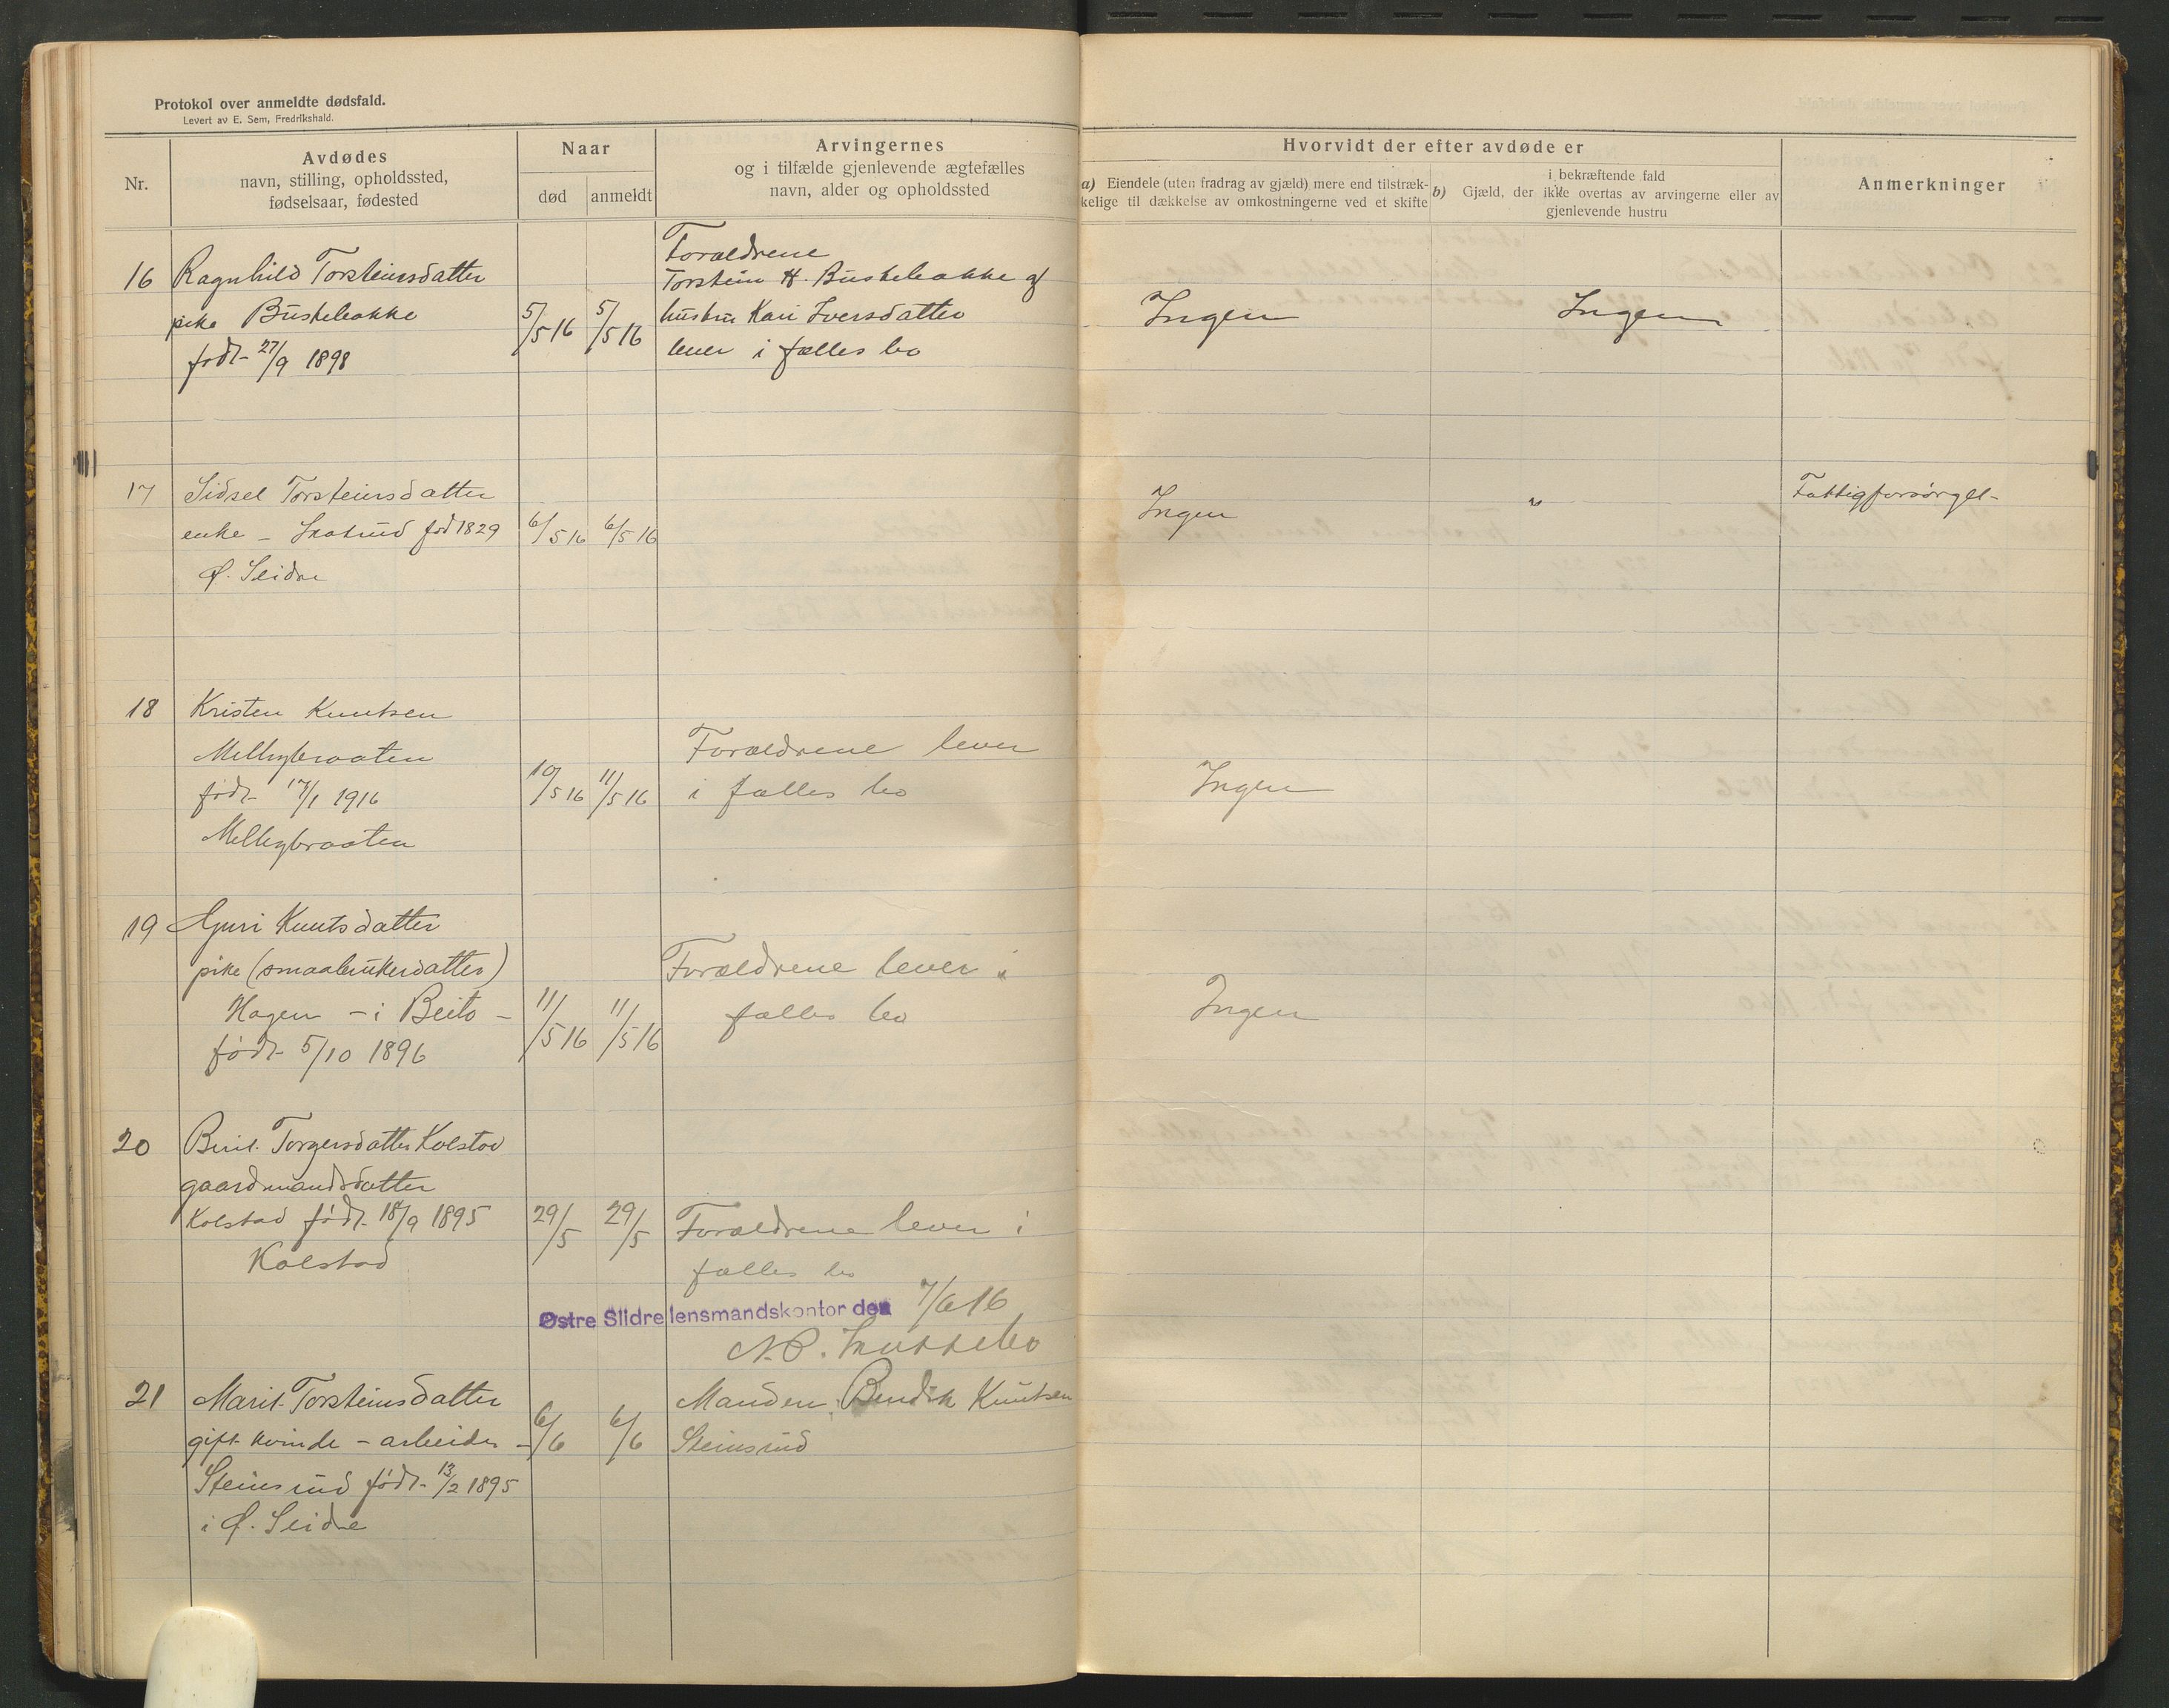 Protokol over anmeldte dødsfald.
Levert av E. Sem, Fredrikshald.
Nr.
Avdødes
navn, stilling, opholdssted,
fødselsaar, fødested
Naar
død
anmeldt
Arvingernes
og i tilfælde gjenlevende ægtefælles
navn, alder og opholdssted
Hvorvidt der efter avdøde er
a) Eiendele (uten fradrag av gjæld) mere end tilstræk-
kelige til dækkelse av omkostningerne ved et skifte
b) Gjæld, der ikke overtas av arvingerne eller av
i bekræftende fald
gjenlevende hustru
Anmerkninger
16 Ragnhild Torsteinsdatter
pike
født 27/9 1898
5/5 16 5/5 16
Forældrene
Torstein H.
hustru Kari Iversdatter
lever i fælles bo
Ingen
Ingen
17 Sidsel Torsteinsdatter
enke - fød 1829
Ø. Slidre
6/5 16 6/5 16
Ingen
"
Fattigforsörget
18 Kristen Knutsen
Melbybraaten
født 17/1 1916
Melbybraaten
10/5 16 11/5 16
Forældrene lever
i fælles bo
Ingen
19 Guri Knutsdatter
pike (smaabrukerdatter)
Hagen - i Beito -
født 5/10 1896
11/5 16 11/5 16
Forældrene lever i
fælles bo
Ingen
20 Berit Torgersdatter Kolstad
gaardmandsdatter
Kolstad født 18/9 1895
Kolstad
29/5 29/5
Forældrene lever i
fælles bo
Østre Slidre lensmandskontor den 7/6 16
N. P.
21 Marit Torsteinsdatter
gift kvinde - arbeider -
Steinsrud født 13/2 1895
i Ø. Slidre
6/6 6/6
Manden Bendik Knutsen
Steinsrud